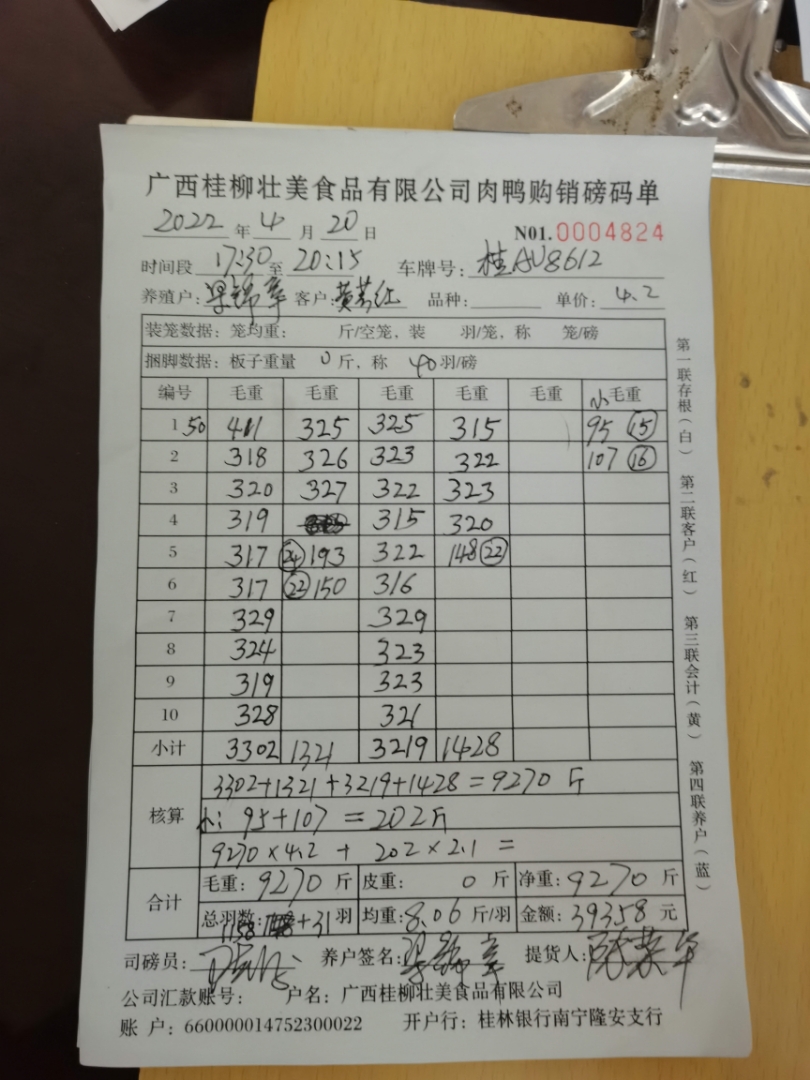 广西桂柳壮美食品有限公司肉鸭购销磅码单
2022 年 4 月 20 日 N01.0004824
时间段 17:30 至 20:15 车牌号: 桂AU8612
养殖户: 梁锦 客户: 黄 红 品种: 单价: 4.2
装笼数据: 笼均重: 斤/空笼, 装 羽/笼, 称 笼/磅
捆脚数据: 板子重量 0 斤, 称 40 羽/磅
编号 毛重 毛重 毛重 毛重 毛重 小毛重
1 50 411 325 325 315 95 15
2 318 326 323 322 107 16
3 320 327 322 323
4 319 315 320
5 317 24 193 322 148 22
6 317 22 150 316
7 329 329
8 324 323
9 319 323
10 328 321
小计 3302 1321 3219 1428
核算 3302+1321+3219+1428=9270 斤
小: 95+107=202斤
9270×4.2 + 202×2.1 =
合计 毛重: 9270 斤 皮重: 0 斤 净重: 9270 斤
总羽数: 1158 +31 羽 均重: 8.06 斤/羽 金额: 39358 元
司磅员: 养户签名: 梁锦 提货人:
公司汇款账号: 户名: 广西桂柳壮美食品有限公司
账 户: 660000014752300022 开户行: 桂林银行南宁隆安支行
第一联存根(白) 第二联客户(红) 第三联会计(黄) 第四联养户(蓝)